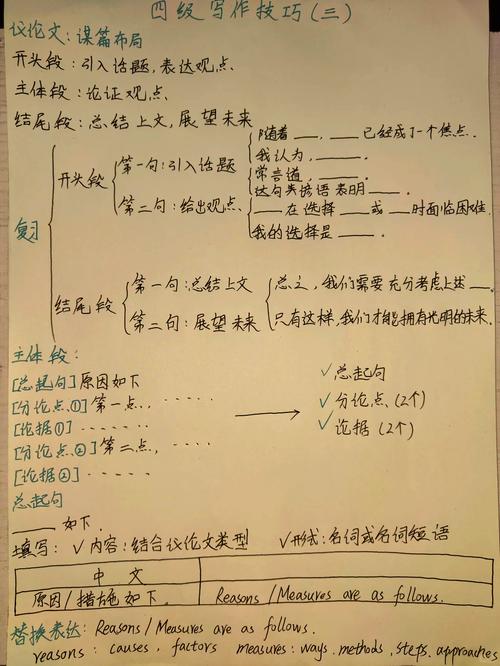 四级写作技巧(三)
议论文:谋篇布局
开头段:引入话题,表达观点.
主体段:论证观点.
结尾段:总结上文,展望未来
复习
开头段
第一句:引入话题
第二句:给出观点
随着___,___已经成了一个焦点.
我认为,___.
常言道,___.
这句类谚语表明___.
___在选择___或___时面临困难.
我的选择是___.
结尾段
第一句:总结上文
第二句:展望未来
总之,我们需要充分考虑上述___.
只有这样,我们才能拥有光明的未来.
主体段:
[总起句]原因如下
[分论点①]第一点,·····
[论据①]······
[分论点②]第二点,····
[论据②]·····
✓总起句
✓分论点(2个)
✓论据(2个)
总起句
___如下.
填写:✓内容:结合议论文类型 ✓形式:名词或名词短语
中文
原因/措施如下. Reasons/Measures are as follows.
替换表达:Reasons/Measures are as follows.
reasons: causes, factors measures: ways. methods, steps. approaches